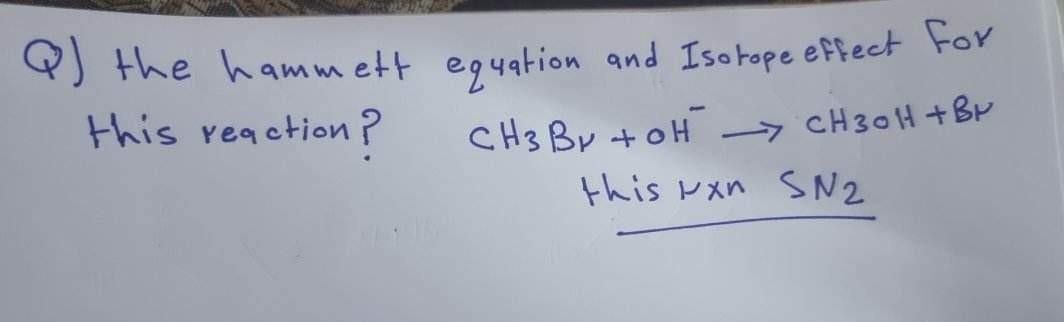 Q) the hammett equation and Isotope effect For
this reaction? CH3Br + OH⁻ → CH3OH + Br
this rxn SN2